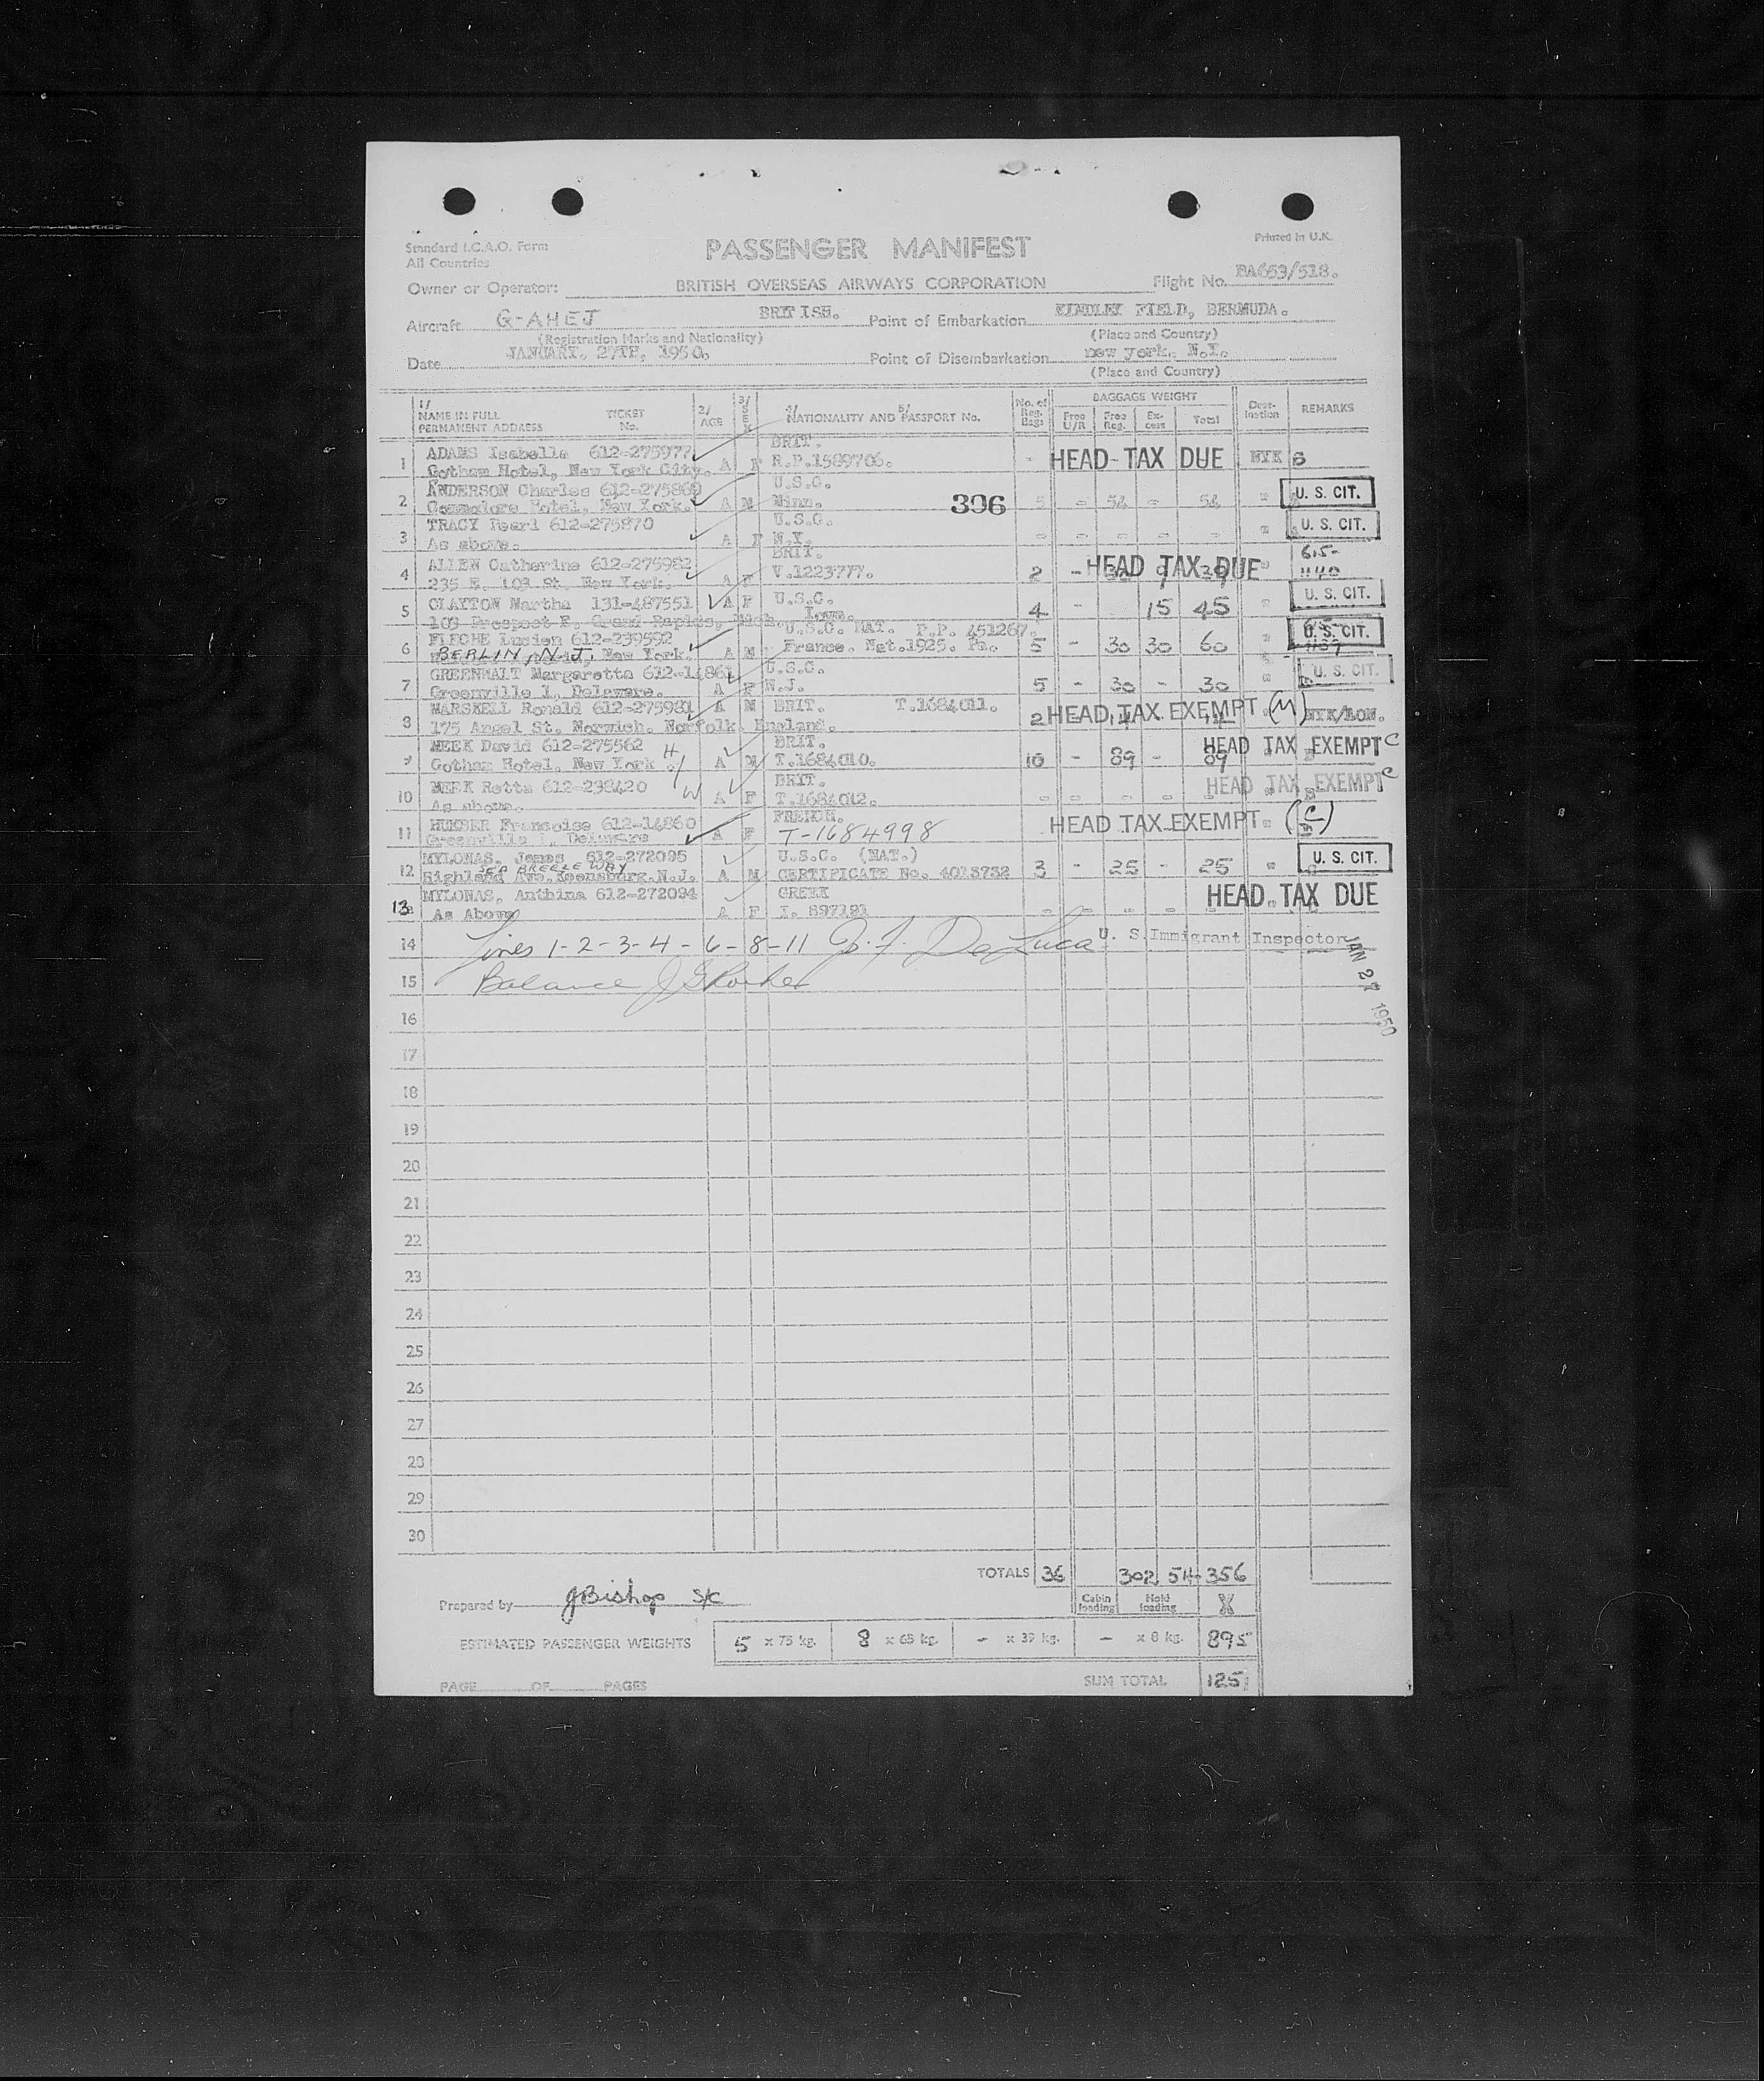 Standard I.C.A.O. Form
All Countries
PASSENGER MANIFEST
Printed in U.K.
Owner or Operator: BRITISH OVERSEAS AIRWAYS CORPORATION Flight No. BA653/518.
Aircraft G-AHEJ BRITISH. Point of Embarkation KINDLEY FIELD, BERMUDA.
(Registration Marks and Nationality) (Place and Country)
Date JANUARY. 27TH, 1950. Point of Disembarkation new york. N.Y.
(Place and Country)
1/ NAME IN FULL PERMANENT ADDRESS TICKET No. 2/ AGE 3/ SEX 4/ 5/ NATIONALITY AND PASSPORT No. No. of Reg. Bags BAGGAGE WEIGHT Free U/R Free Reg. Excess Total Destination REMARKS
1 ADAMS Isabella 612-275977 BRIT.
Gotham Hotel, New York City. A F R.P.1589706. - HEAD TAX DUE NYK
2 ANDERSON Charles 612-275869 U.S.C.
Commodore Hotel, New York. A M Minn. 396 5 - 54 - 54 " U. S. CIT.
3 TRACY Pearl 612-275870 U.S.C.
As above. A F N.Y. - - - - - " U. S. CIT.
4 ALLEN Catherine 612-275982 BRIT. 615-
235 E. 103 St. New York. A F V.1223777. 2 - HEAD TAX DUE 1140
5 CLAYTON Martha 131-487551 A F U.S.C. 4 - 15 45 " U. S. CIT.
103 Prospect F, Grand Rapids, Mich. Iowa.
6 FLECHE Lucien 612-239592 U.S.C. NAT. P.P. 451267.
BERLIN, N.J. New York. A M France. Nat.1925. Pa. 5 - 30 30 60 " U. S. CIT.
7 GREENWALT Margaretta 612-14861 U.S.C.
Greenville 1, Delaware. A F N.J. 5 - 30 - 30 " U. S. CIT.
8 MARSHELL Ronald 612-275981 A M BRIT. T.1684011.
175 Angel St. Norwich. Norfolk. England. 2 HEAD TAX EXEMPT (M) NYK/LON.
9 MEEK David 612-275562 H BRIT.
Gotham Hotel, New York. A M T.1684010. 10 - 89 - 89 HEAD TAX EXEMPT C
10 MEEK Retta 612-238420 W BRIT.
As above. A F T.1684012. - - - - - HEAD TAX EXEMPT C
11 HUMBER Francoise 612-14860 FRENCH.
Greenville 1, Delaware A F T-1684998 HEAD TAX EXEMPT. (C)
12 MYLONAS, James 612-272095 U.S.C. (NAT.)
SEA BREEZE WAY
Highland Ave. Keensburg. N.J. A M CERTIFICATE No. 4013732 3 - 25 - 25 " U. S. CIT.
13 MYLONAS, Anthina 612-272094 GREEK HEAD TAX DUE
As Above A F I. 897191 - - - - -
14 Lines 1-2-3-4-6-8-11 J. F. DeLuca U. S. Immigrant Inspector JAN 27 1950
15 Balance
16
17
18
19
20
21
22
23
24
25
26
27
28
29
30
TOTALS 36 302 54 356
Prepared by JBishop S/C Cabin loading Hold loading X
ESTIMATED PASSENGER WEIGHTS 5 x 75 kg. 8 x 65 kg. - x 39 kg. - x 8 kg. 895
PAGE OF PAGES SUM TOTAL 1251